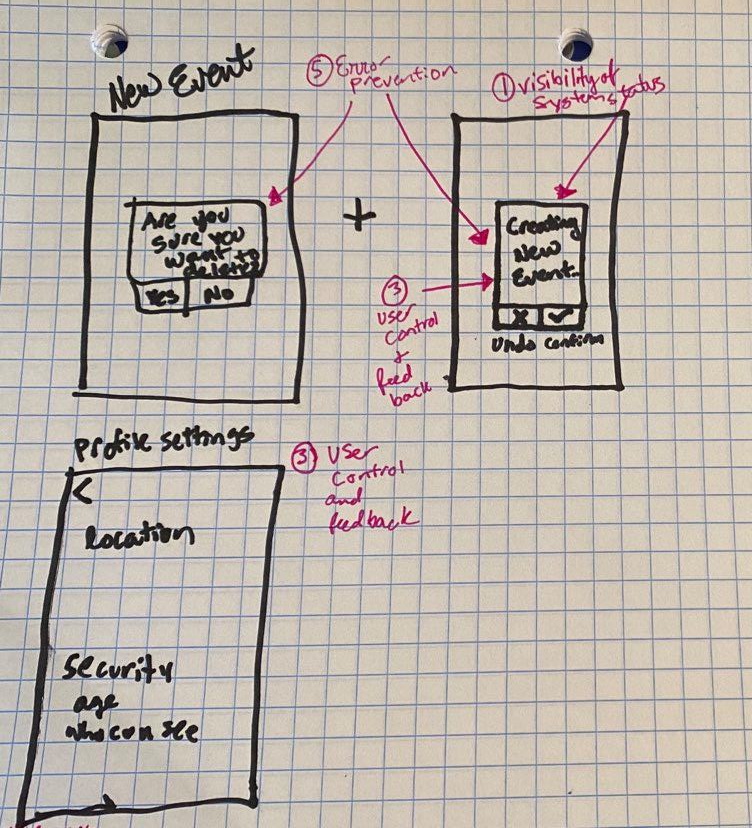 New Event
⑤ Error
prevention
① visibility of
system status
Are you
sure you
want to
delete?
Yes No
+
Creating
New
Event...
X ✓
Undo confirm
③
User
Control
+
feed
back
Profile settings
③ User
Control
and
feedback
<
Location
Security
age
who can see